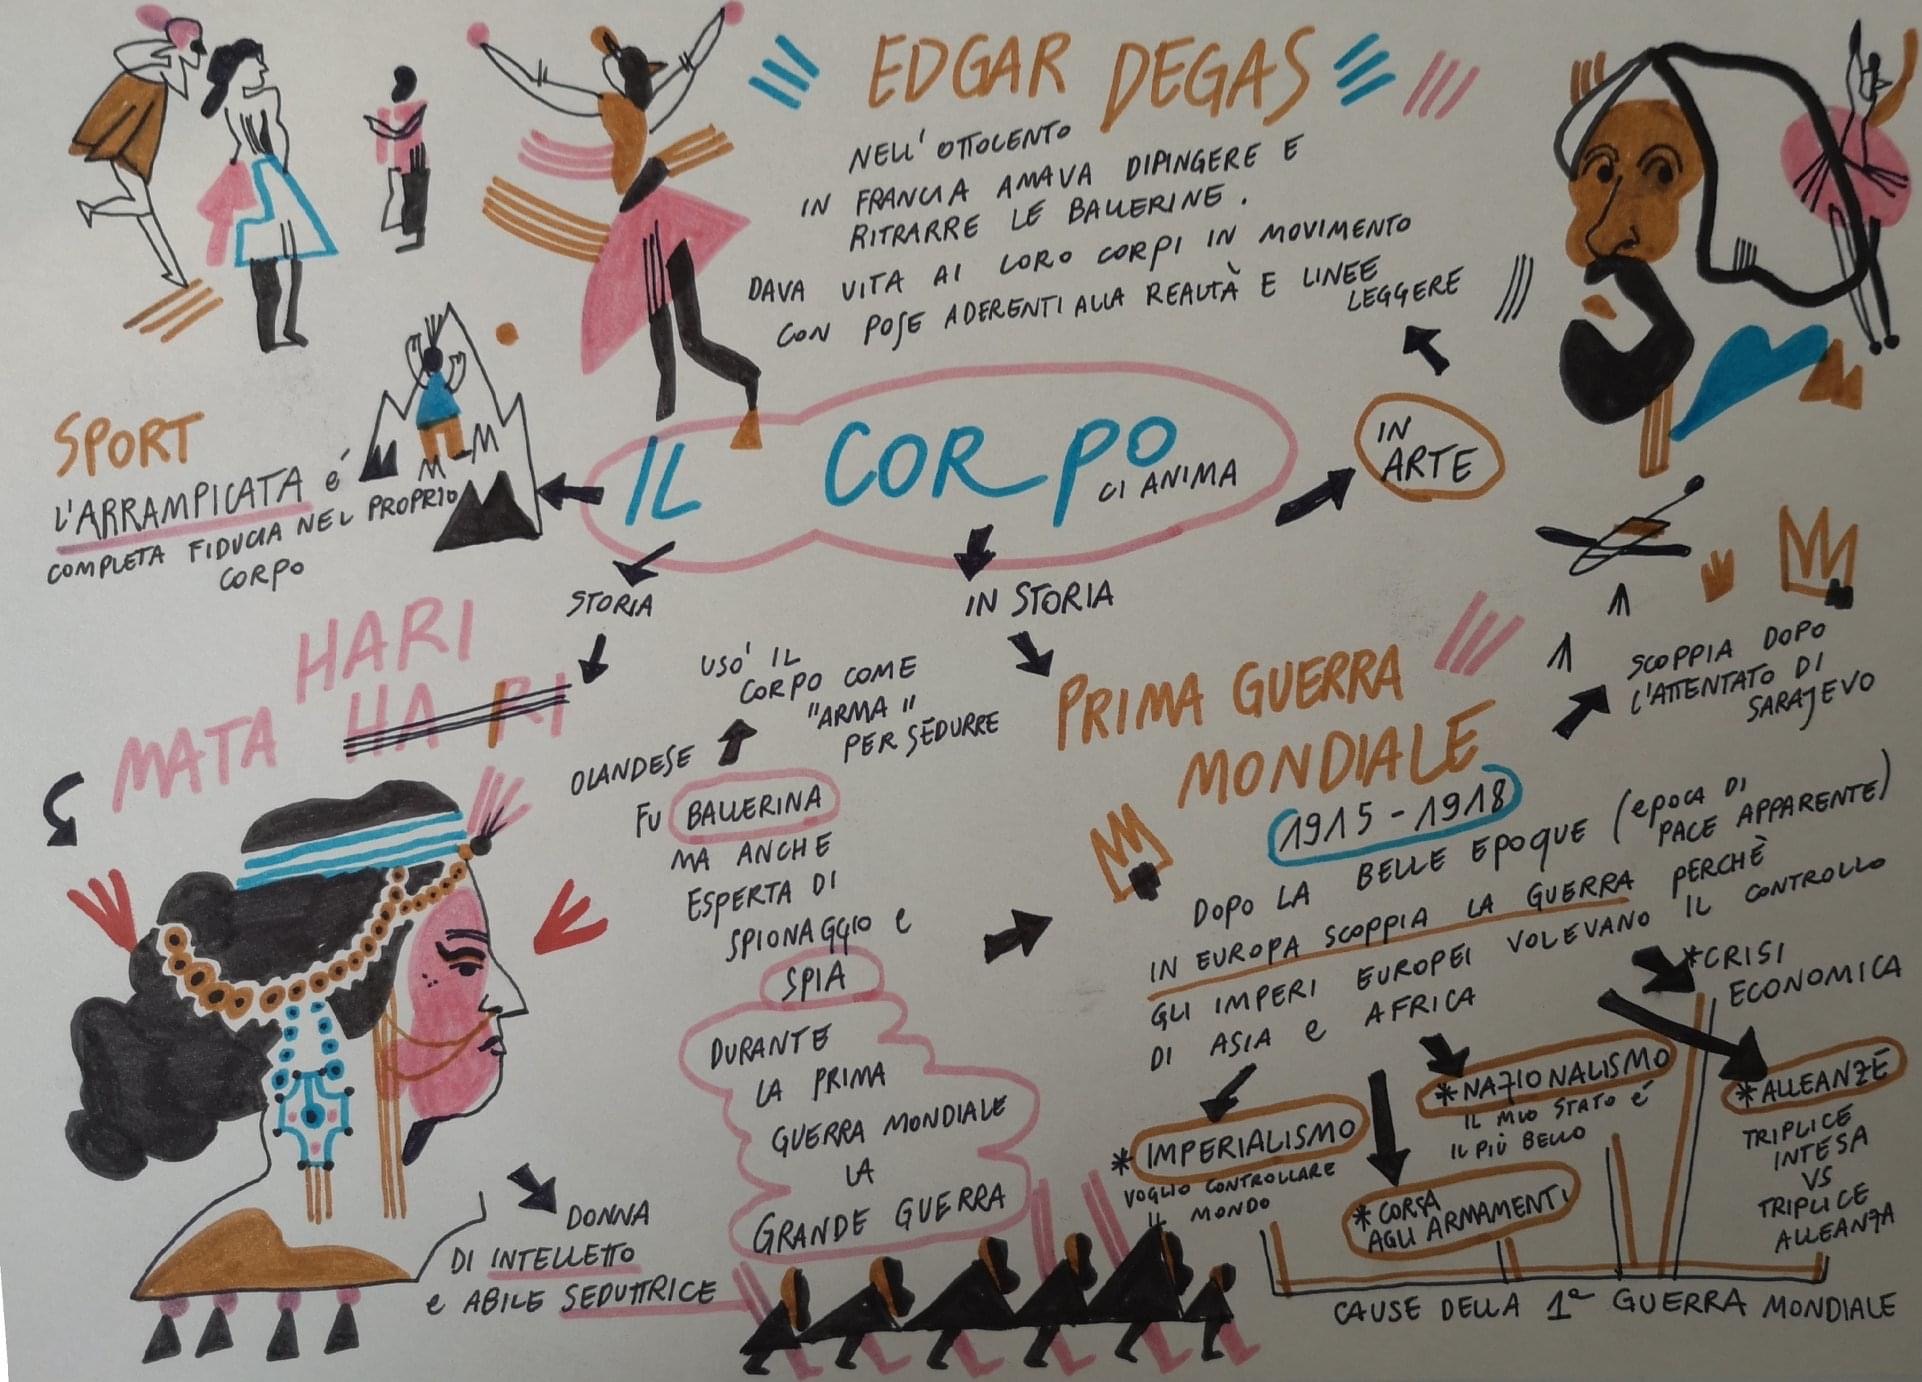 EDGAR DEGAS
NELL' OTTOCENTO
IN FRANCIA AMAVA DIPINGERE E
RITRARRE LE BALLERINE.
DAVA VITA AI LORO CORPI IN MOVIMENTO
CON POSE ADERENTI ALLA REALTÀ E LINEE
LEGGERE
IN
ARTE
IL CORPO
CI ANIMA
SPORT
L'ARRAMPICATA é
COMPLETA FIDUCIA NEL PROPRIO
CORPO
STORIA
IN STORIA
HARI
MATA HARI
USO' IL
CORPO COME
"ARMA"
PER SEDURRE
OLANDESE
FU BALLERINA
MA ANCHE
ESPERTA DI
SPIONAGGIO e
SPIA
DURANTE
LA PRIMA
GUERRA MONDIALE
LA
GRANDE GUERRA
DONNA
DI INTELLETTO
e ABILE SEDUTTRICE
PRIMA GUERRA
MONDIALE
1915-1918
SCOPPIA DOPO
L'ATTENTATO DI
SARAJEVO
DOPO LA BELLE EPOQUE (epoca DI
PACE APPARENTE)
IN EUROPA SCOPPIA LA GUERRA PERCHÈ
GLI IMPERI EUROPEI VOLEVANO IL CONTROLLO
DI ASIA e AFRICA
*CRISI
ECONOMICA
*NAZIONALISMO
IL MIO STATO é
IL PIÙ BELLO
*ALLEANZE
TRIPLICE
INTESA
VS
TRIPLICE
ALLEANZA
*IMPERIALISMO
VOGLIO CONTROLLARE
IL MONDO
*CORSA
AGLI ARMAMENTI
CAUSE DELLA 1ª GUERRA MONDIALE